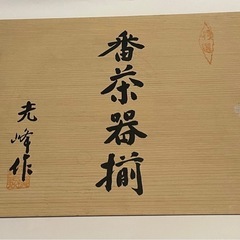 番茶器揃
光峰作